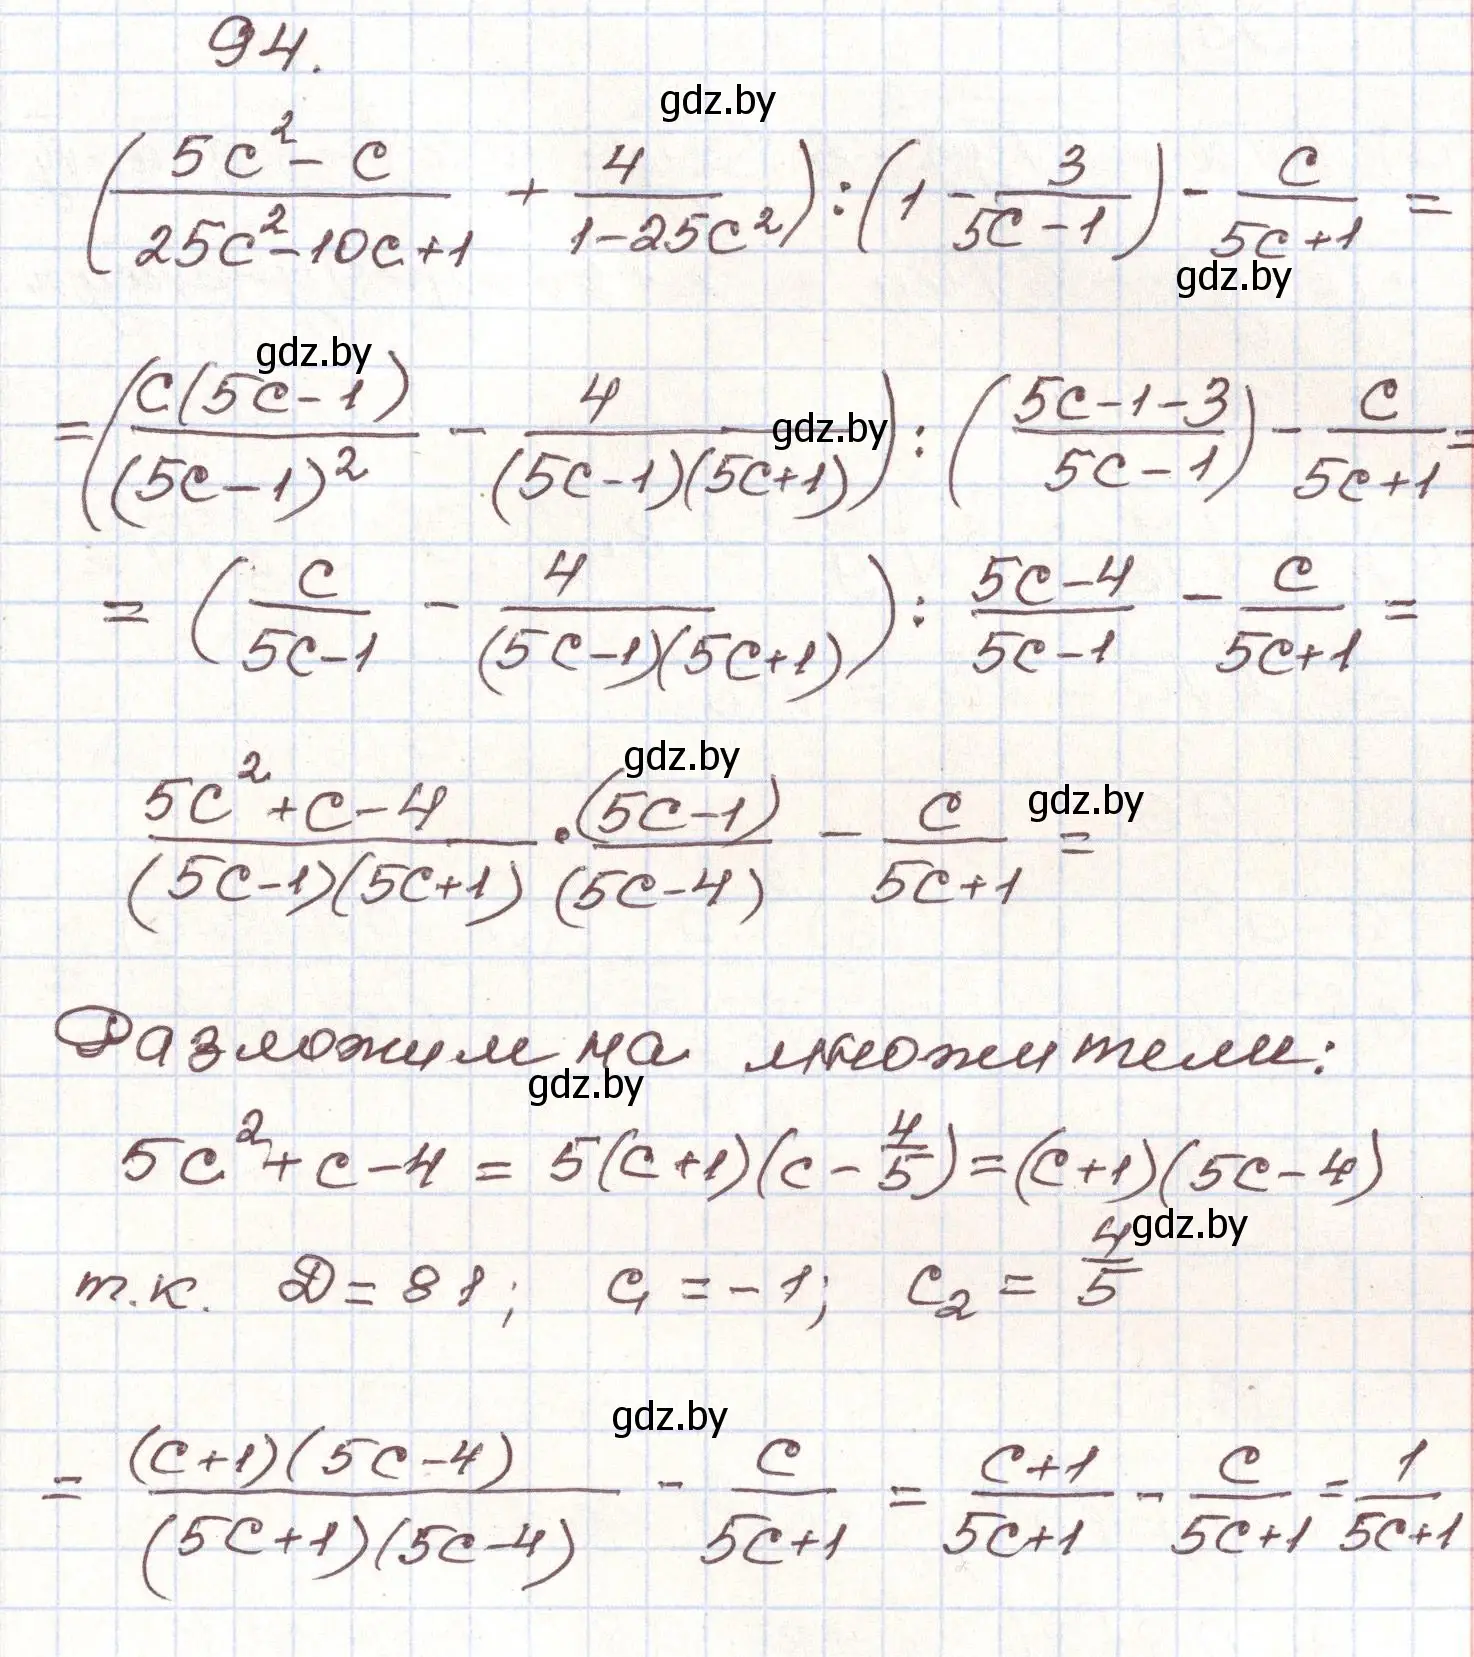 94.
gdz.by
(5c² - c / 25c² - 10c + 1 + 4 / 1 - 25c²) : (1 - 3 / 5c - 1) - c / 5c + 1 =
gdz.by
gdz.by
= (c(5c - 1) / (5c - 1)² - 4 / (5c - 1)(5c + 1)) : (5c - 1 - 3 / 5c - 1) - c / 5c + 1 =
gdz.by
= (c / 5c - 1 - 4 / (5c - 1)(5c + 1)) : 5c - 4 / 5c - 1 - c / 5c + 1 =
gdz.by
gdz.by
5c² + c - 4 / (5c - 1)(5c + 1) · (5c - 1) / (5c - 4) - c / 5c + 1 =
Разложим на множители:
gdz.by
5c² + c - 4 = 5(c + 1)(c - 4/5) = (c + 1)(5c - 4)
gdz.by
т.к. D = 81; c₁ = -1; c₂ = 4/5
gdz.by
= (c + 1)(5c - 4) / (5c + 1)(5c - 4) - c / 5c + 1 = c + 1 / 5c + 1 - c / 5c + 1 = 1 / 5c + 1